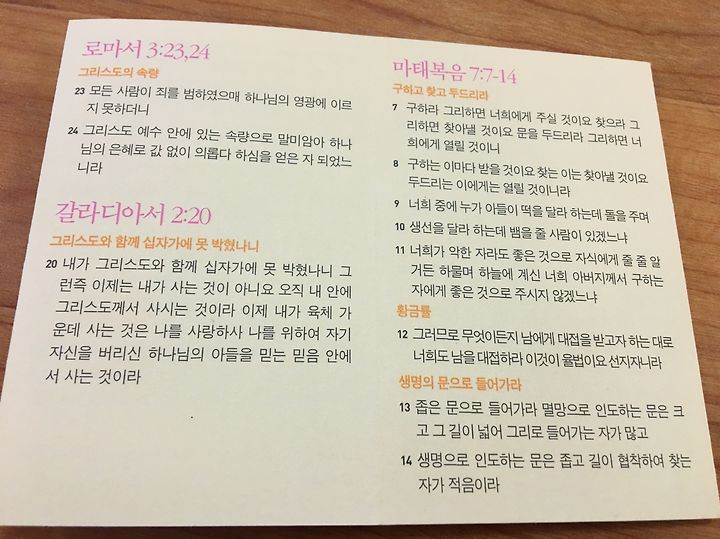 로마서 3:23,24
그리스도의 속량
23 모든 사람이 죄를 범하였으매 하나님의 영광에 이르
지 못하더니
24 그리스도 예수 안에 있는 속량으로 말미암아 하나
님의 은혜로 값 없이 의롭다 하심을 얻은 자 되었느
니라
갈라디아서 2:20
그리스도와 함께 십자가에 못 박혔나니
20 내가 그리스도와 함께 십자가에 못 박혔나니 그
런즉 이제는 내가 사는 것이 아니요 오직 내 안에
그리스도께서 사시는 것이라 이제 내가 육체 가
운데 사는 것은 나를 사랑하사 나를 위하여 자기
자신을 버리신 하나님의 아들을 믿는 믿음 안에
서 사는 것이라
마태복음 7:7-14
구하고 찾고 두드리라
7 구하라 그리하면 너희에게 주실 것이요 찾으라 그
리하면 찾아낼 것이요 문을 두드리라 그리하면 너
희에게 열릴 것이니
8 구하는 이마다 받을 것이요 찾는 이는 찾아낼 것이요
두드리는 이에게는 열릴 것이니라
9 너희 중에 누가 아들이 떡을 달라 하는데 돌을 주며
10 생선을 달라 하는데 뱀을 줄 사람이 있겠느냐
11 너희가 악한 자라도 좋은 것으로 자식에게 줄 줄 알
거든 하물며 하늘에 계신 너희 아버지께서 구하는
자에게 좋은 것으로 주시지 않겠느냐
황금률
12 그러므로 무엇이든지 남에게 대접을 받고자 하는 대로
너희도 남을 대접하라 이것이 율법이요 선지자니라
생명의 문으로 들어가라
13 좁은 문으로 들어가라 멸망으로 인도하는 문은 크
고 그 길이 넓어 그리로 들어가는 자가 많고
14 생명으로 인도하는 문은 좁고 길이 협착하여 찾는
자가 적음이라